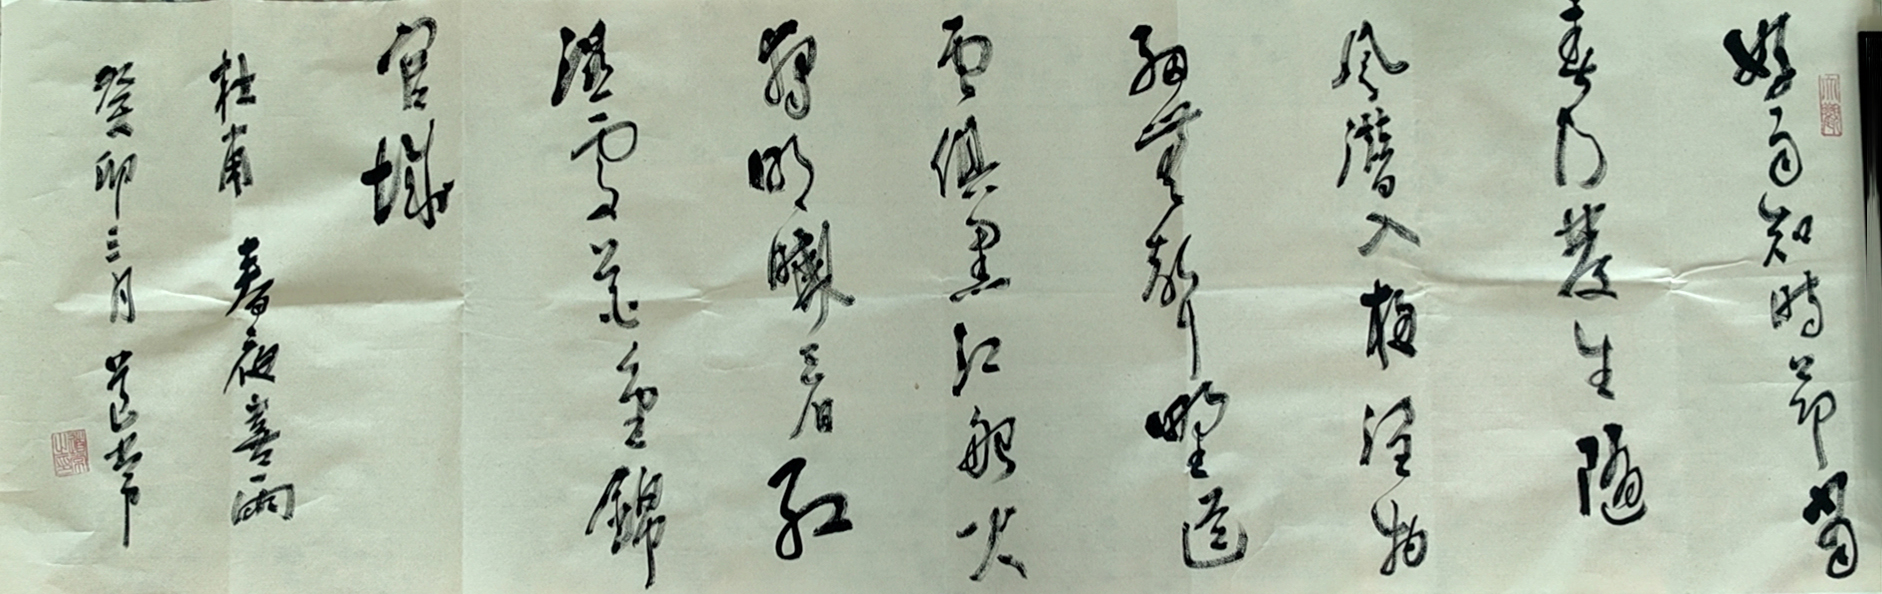 好雨知時節當
春乃發生隨
风潛入夜潤物
細無聲野逕
雲俱黑江船火
獨明曉看紅
濕處花重錦
官城
杜甫 春夜喜雨
癸卯三月